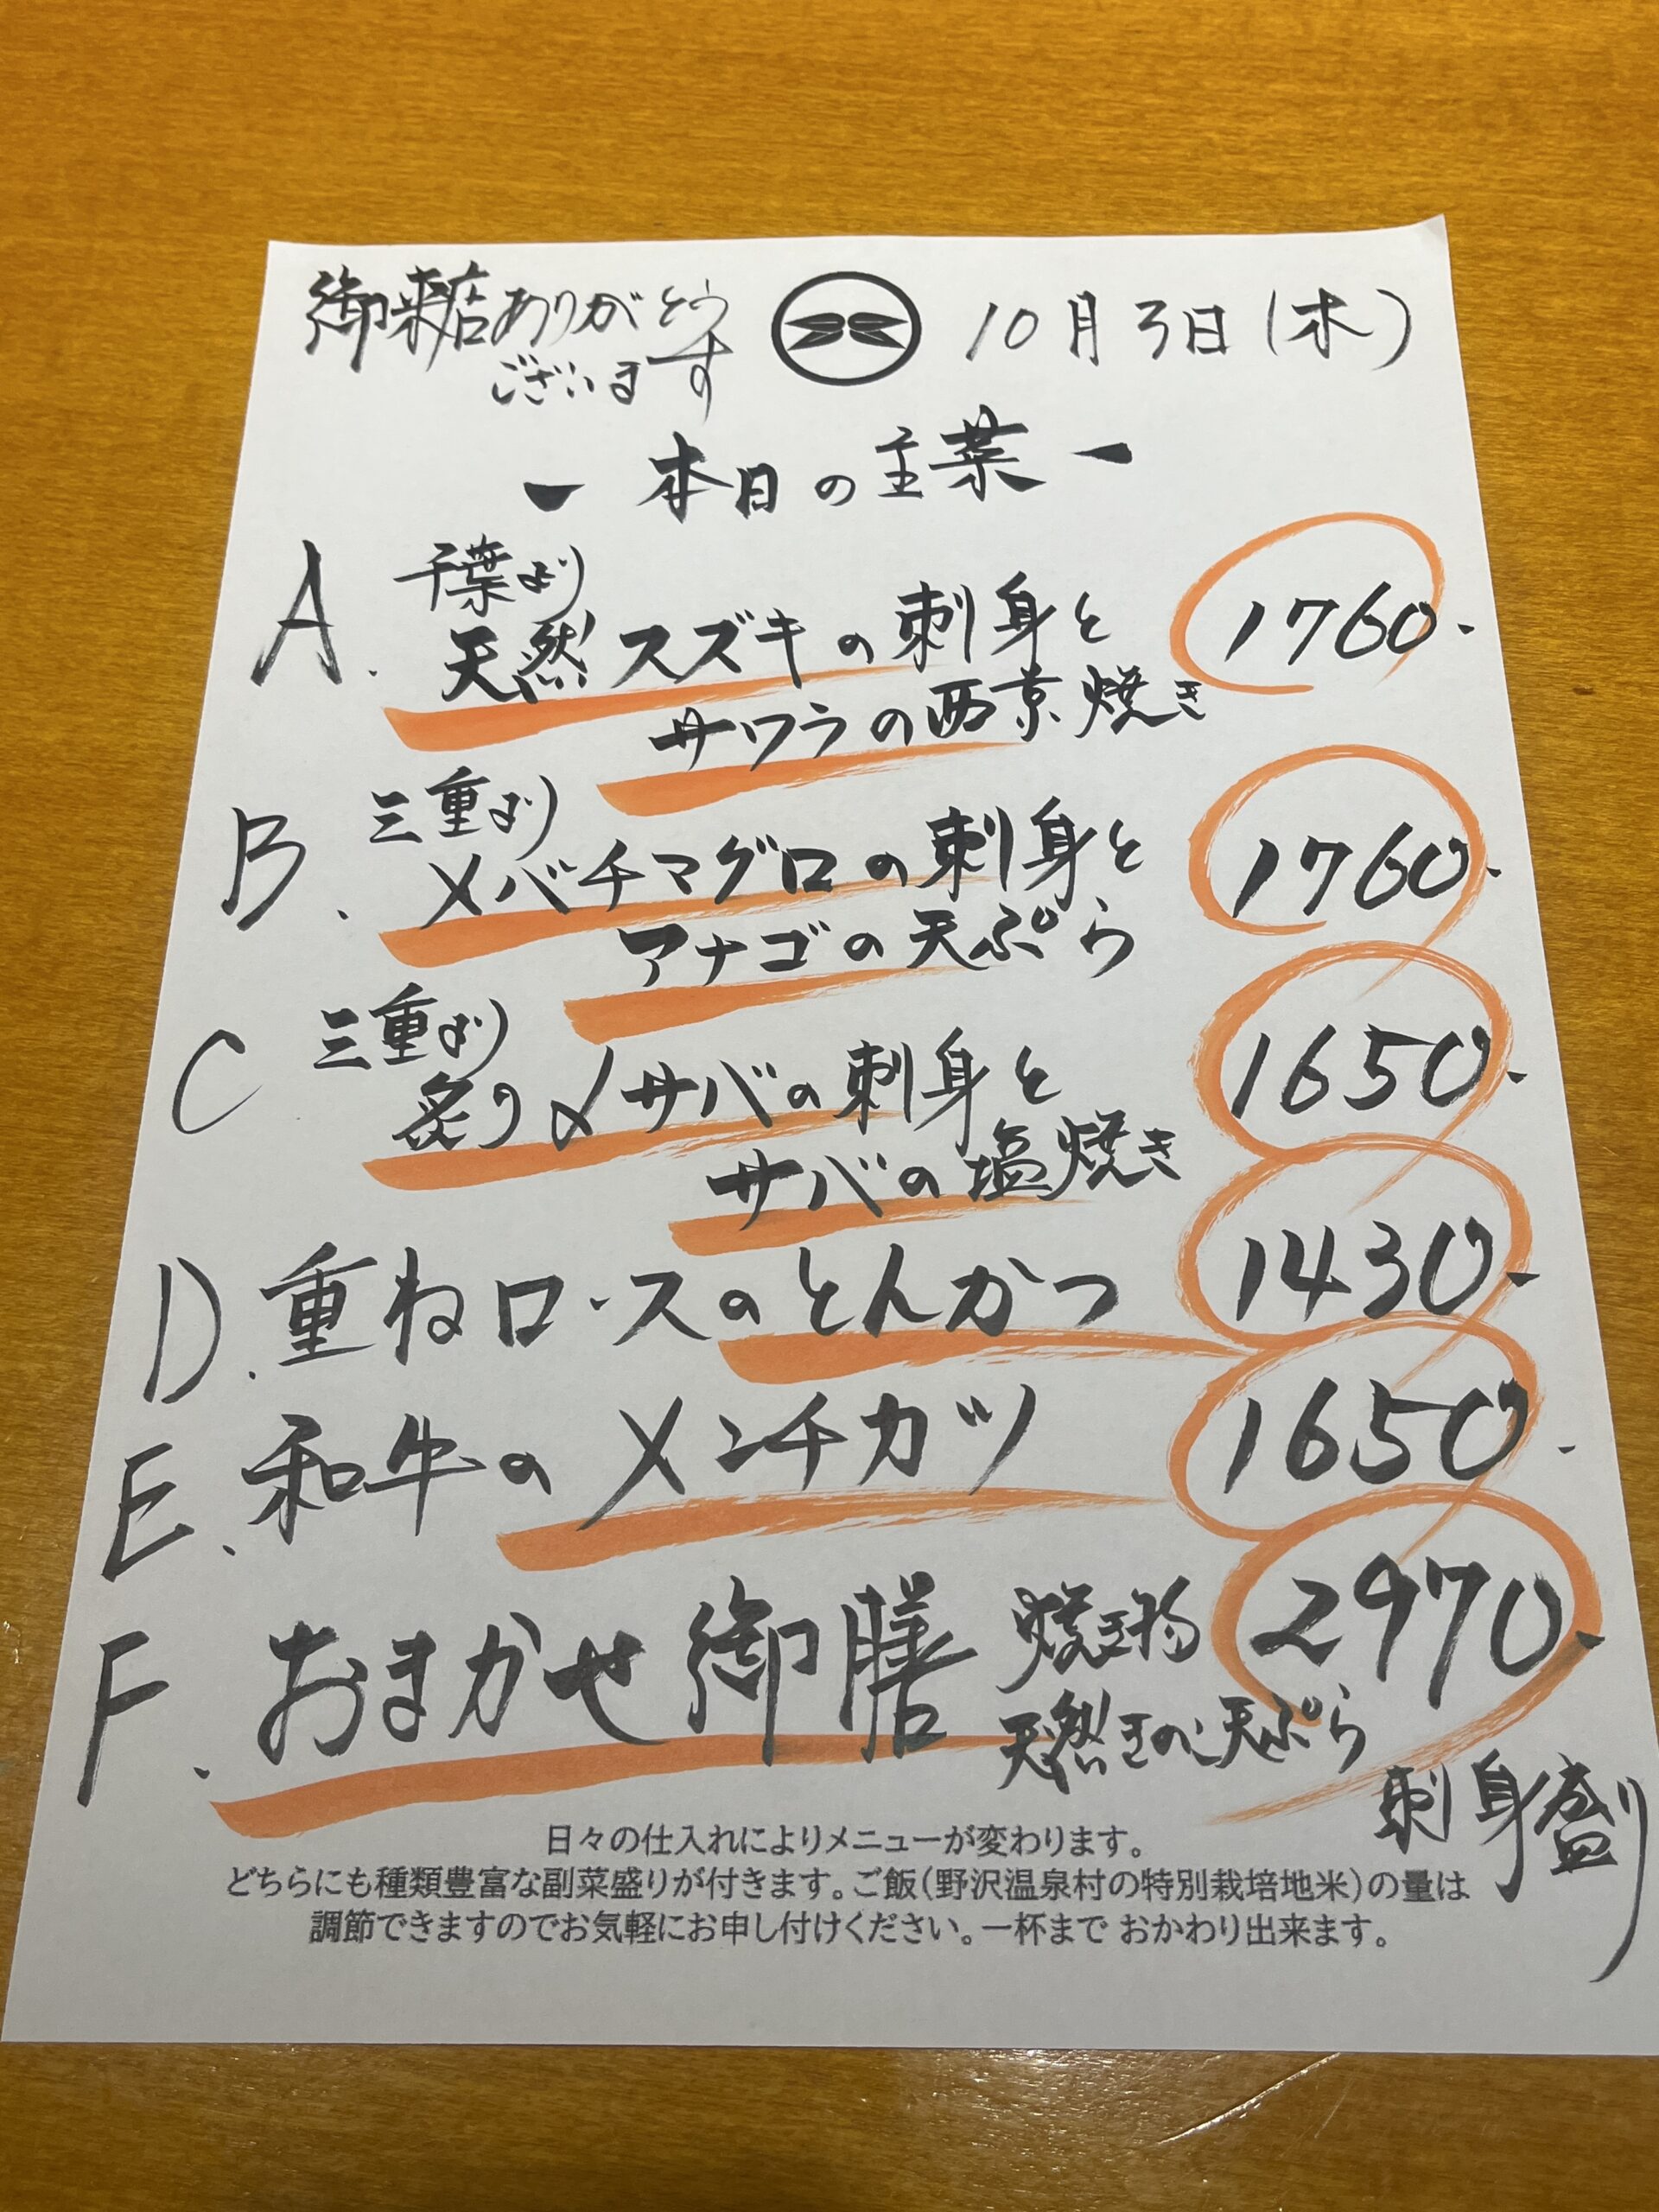 御来店ありがとう
ございます
10月3日(木)
ー 本日の主菜 ー
A. 千葉より
天然スズキの刺身と 1760.
サワラの西京焼き
B. 三重より
メバチマグロの刺身と 1760.
アナゴの天ぷら
C 三重より
炙り〆サバの刺身と 1650.
サバの塩焼き
D. 重ねロースのとんかつ 1430.
E. 和牛のメンチカツ 1650.
F. おまかせ御膳 焼き物 2970.
天然きのこ天ぷら
刺身盛り
日々の仕入れによりメニューが変わります。
どちらにも種類豊富な副菜盛りが付きます。ご飯(野沢温泉村の特別栽培地米)の量は
調節できますのでお気軽にお申し付けください。一杯まで おかわり出来ます。